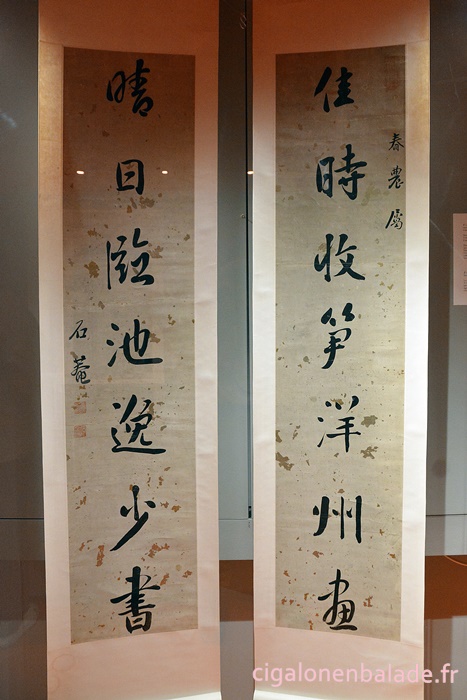 佳時收筍洋州畫
春農屬
晴日臨池逸少書
石菴
cigalonenbalade.fr